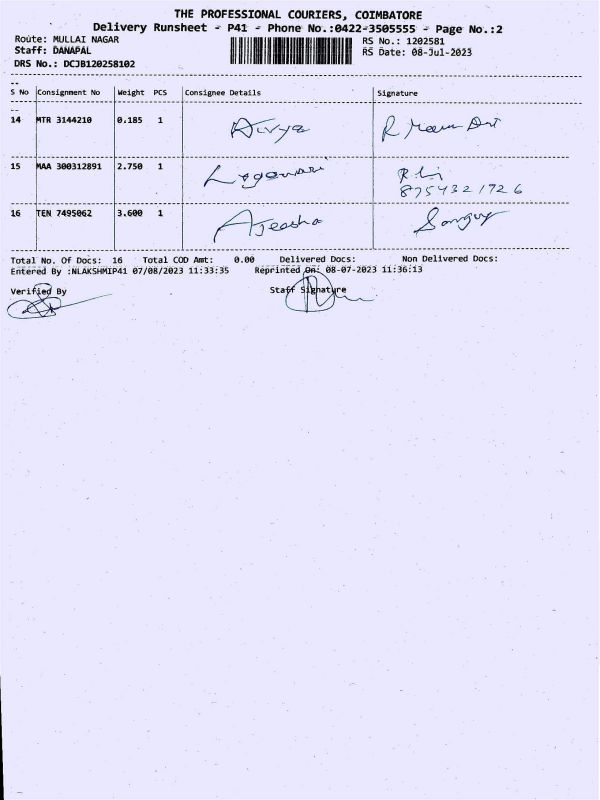 THE PROFESSIONAL COURIERS, COIMBATORE
Delivery Runsheet - P41 - Phone No.:0422-3505555 - Page No.:2
Route: MULLAI NAGAR RS No.: 1202581
Staff: DANAPAL RS Date: 08-Jul-2023
DRS No.: DCJB120258102
S No Consignment No Weight PCS Consignee Details Signature
14 MTR 3144210 0.185 1 Divya R
15 MAA 300312891 2.750 1
8754321726
16 TEN 7495062 3.600 1 Ajeesha
Total No. Of Docs: 16 Total COD Amt: 0.00 Delivered Docs: Non Delivered Docs:
Entered By :NLAKSHMIP41 07/08/2023 11:33:35 Reprinted On: 08-07-2023 11:36:13
Verified By Staff Signature